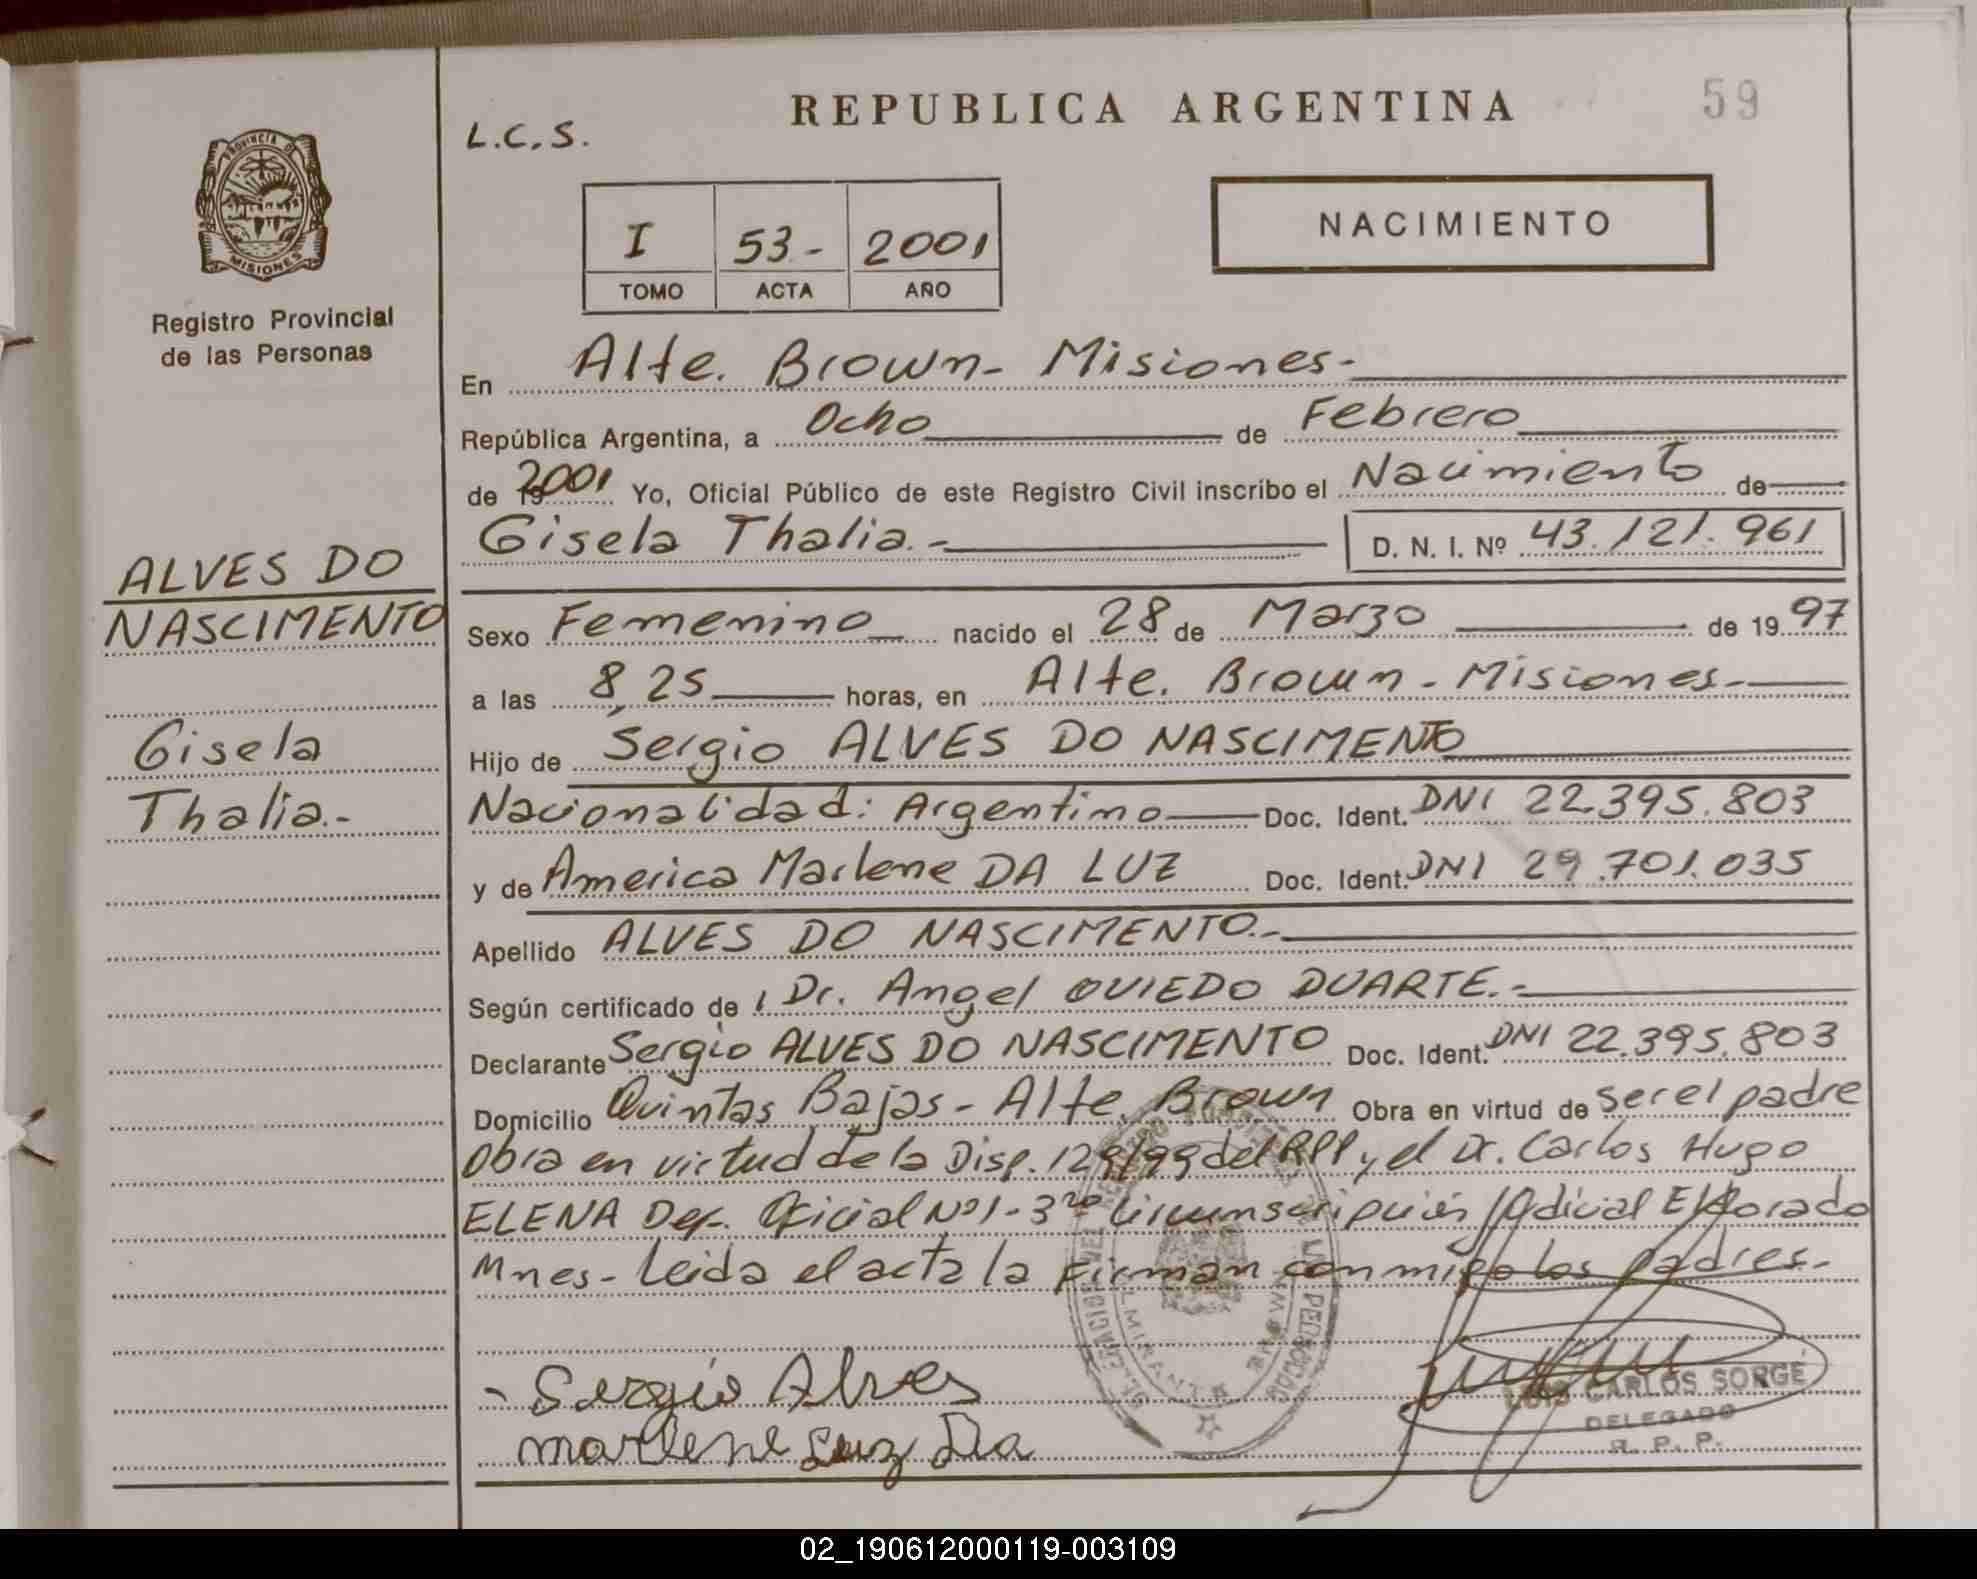 REPUBLICA ARGENTINA
59
L.C.S.
PROVINCIA D
MISIONES
Registro Provincial
de las Personas
I 53- 2001
TOMO ACTA AÑO
NACIMIENTO
En Alte. Brown- Misiones-
República Argentina, a Ocho de Febrero
de 19 2001 Yo, Oficial Público de este Registro Civil inscribo el Nacimiento de
Gisela Thalia.- D. N. I. Nº 43.121.961
ALVES DO
NASCIMENTO
Gisela
Thalia.-
Sexo Femenino nacido el 28 de Marzo de 19 97
a las 8,25 horas, en Alte. Brown - Misiones-
Hijo de Sergio ALVES DO NASCIMENTO
Nacionalidad: Argentino Doc. Ident. DNI 22.395.803
y de America Marlene DA LUZ Doc. Ident. DNI 29.701.035
Apellido ALVES DO NASCIMENTO.-
Según certificado de Dr. Angel OVIEDO DUARTE.-
Declarante Sergio ALVES DO NASCIMENTO Doc. Ident. DNI 22.395.803
Domicilio Quintas Bajas - Alte. Brown Obra en virtud de ser el padre
Obra en virtud de la Disp. 129/99 del RPP y el Dr. Carlos Hugo
ELENA Def. Oficial Nº1-3ra Circunscripción Judicial Eldorado
Mnes- Leida el acta la firman conmigo los padres.-
- Sergio Alves
marlene Luz Da
LUIS CARLOS SORGE
DELEGADO
R. P. P.
02_190612000119-003109